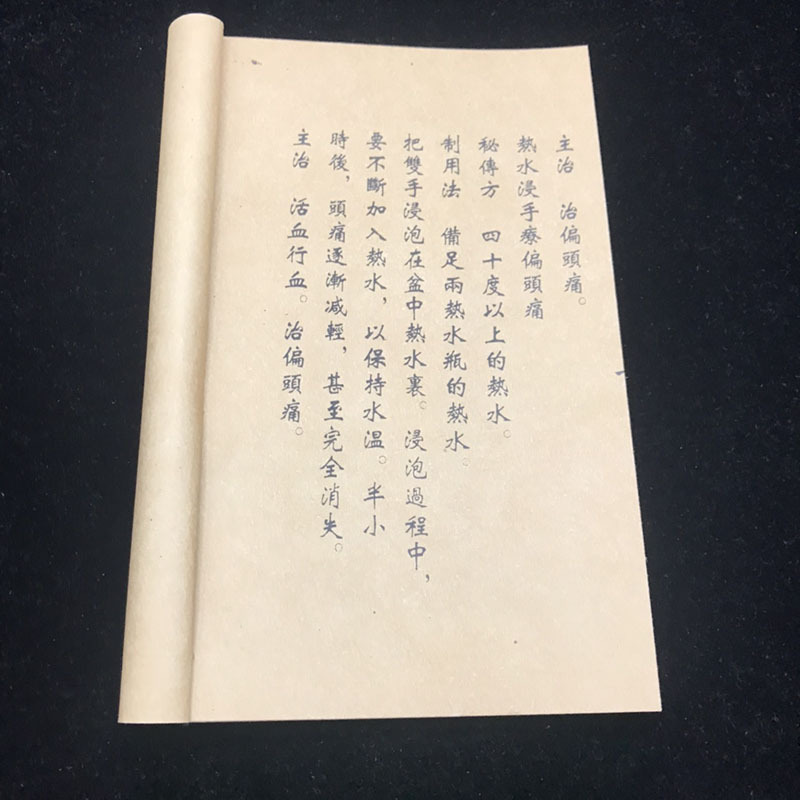 主治　治偏頭痛。
熱水浸手療偏頭痛
秘傳方　四十度以上的熱水。
制用法　備足兩熱水瓶的熱水。
把雙手浸泡在盆中熱水裏。浸泡過程中，
要不斷加入熱水，以保持水温。半小
時後，頭痛逐漸减輕，甚至完全消失。
主治　活血行血。治偏頭痛。